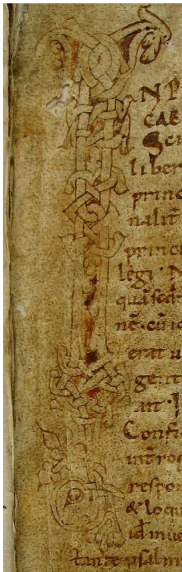 N P
CAE
Scri
liber
princ
nalit̄
princi
legi · N
quasdā
nē · cū ic
erat u
gent
ait · I
Confi
introe
respon
& loqu
id inue
tante psalm